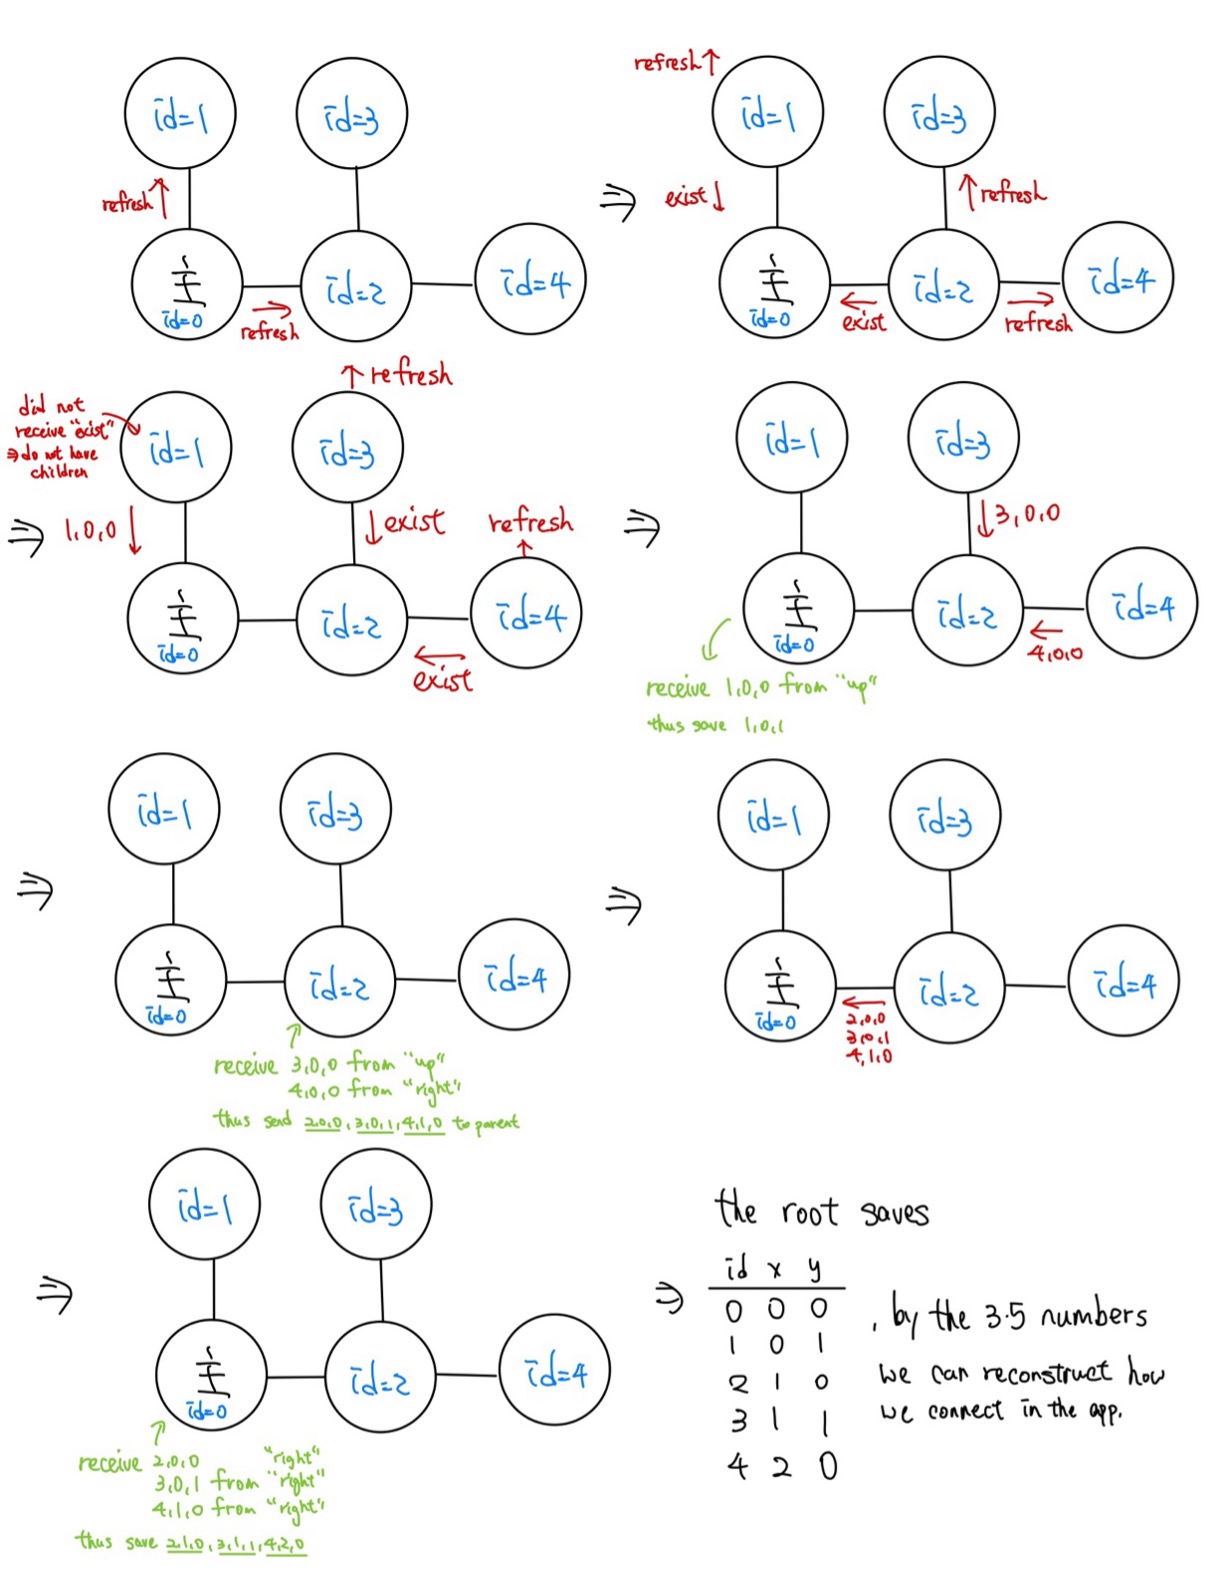 id=1
id=3
refresh↑
主
id=0
id=2
id=4
→
refresh
refresh↑
id=1
id=3
⇒
exist↓
↑refresh
主
id=0
id=2
id=4
←
exist
→
refresh
↑refresh
did not
receive "exist"
⇒do not have
children
id=1
id=3
⇒
1,0,0↓
↓exist
refresh
↑
主
id=0
id=2
id=4
←
exist
id=1
id=3
⇒
↓3,0,0
主
id=0
id=2
id=4
←
4,0,0
receive 1,0,0 from "up"
thus save 1,0,1
id=1
id=3
⇒
主
id=0
id=2
id=4
receive 3,0,0 from "up"
4,0,0 from "right"
thus send 2,0,0, 3,0,1, 4,1,0 to parent
id=1
id=3
⇒
主
id=0
id=2
id=4
←
2,0,0
3,0,1
4,1,0
id=1
id=3
⇒
主
id=0
id=2
id=4
receive 2,0,0 "right"
3,0,1 from "right"
4,1,0 from "right"
thus save 2,1,0, 3,1,1, 4,2,0
the root saves
⇒
id x y
0 0 0
1 0 1
2 1 0
3 1 1
4 2 0
, by the 3·5 numbers
we can reconstruct how
we connect in the app.